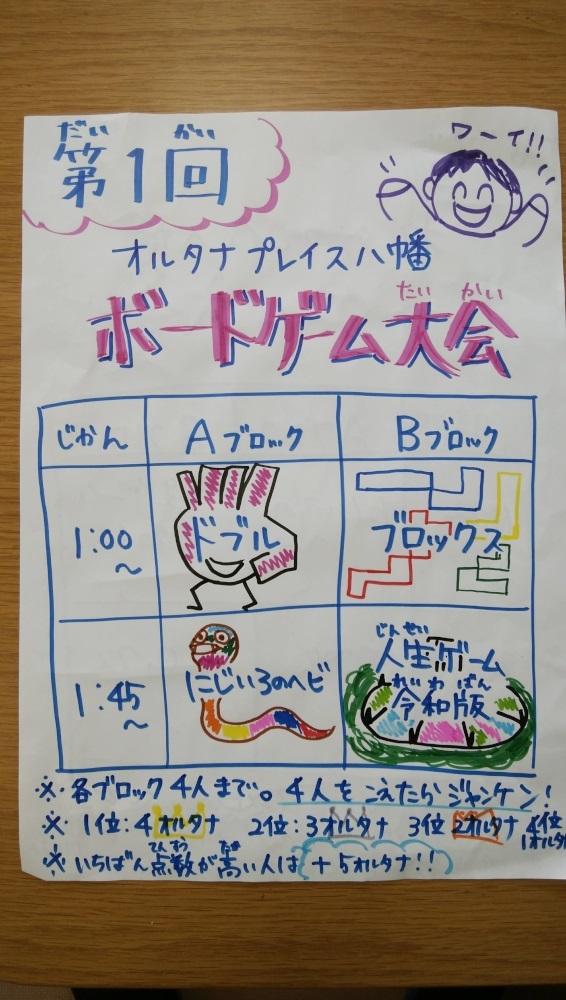 だい かい
第1回
ワーイ!!
オルタナプレイス八幡
たい かい
ボードゲーム大会
じかん Aブロック Bブロック
1:00〜 ドブル ブロックス
1:45〜 にじいろのヘビ
じんせい
人生ゲーム
れいわばん
令和版
※各ブロック4人まで。4人をこえたらジャンケン!
※1位:4オルタナ 2位:3オルタナ 3位2オルタナ 4位1オルタナ
てんすう たか
※いちばん点数が高い人は+5オルタナ!!